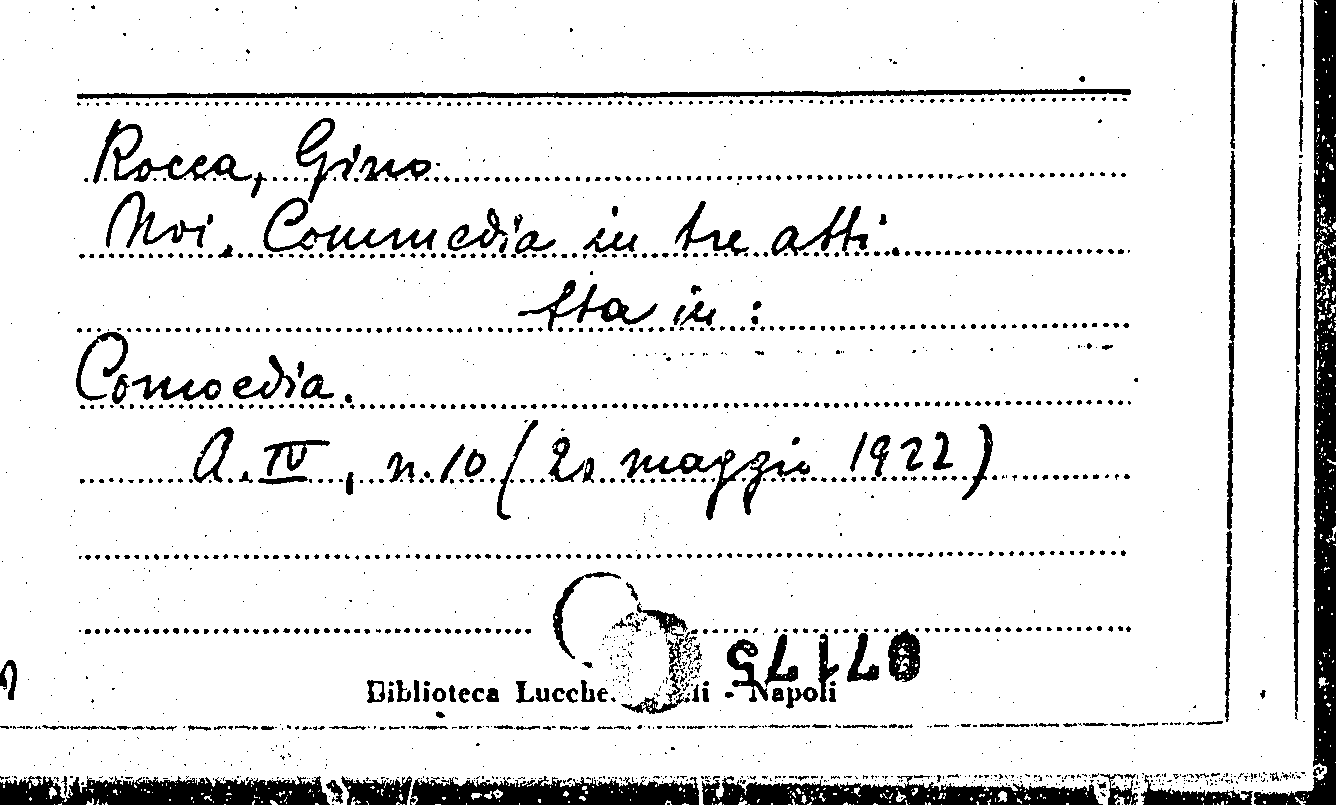 Rocca, Gino
Noi. Commedia in tre atti.
Sta in:
Comoedia.
A. IV, n. 10 (20 maggio 1922)
071175
Biblioteca Lucche. li - Napoli